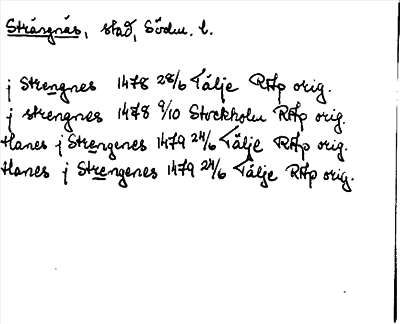 Strängnäs, stad, Södm. l.
j Strengnes 1478 28/6 Tälje RAp orig.
j strengnes 1478 9/10 Stockholm RAp orig.
Hanes j Strengenes 1479 24/6 Tälje RAp orig.
Hanes j Strengenes 1479 24/6 Tälje RAp orig.